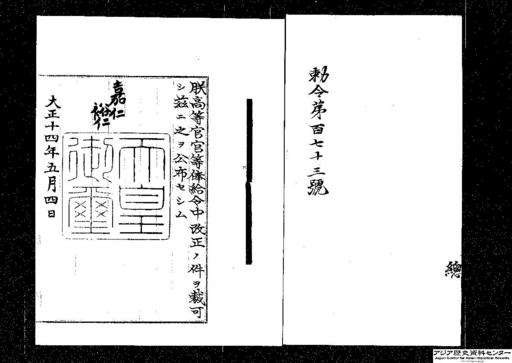 勅令第百七十三號
總
朕高等官官等俸給令中改正ノ件ヲ裁可
シ茲ニ之ヲ公布セシム
嘉仁
裕仁
天皇
御璽
大正十四年五月四日
アジア歴史資料センター
Japan Center for Asian Historical Records